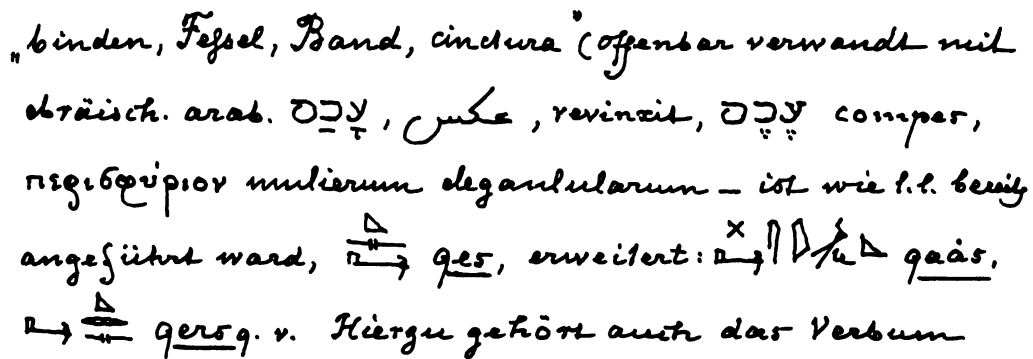 „binden, Fessel, Band, cinctura“ (offenbar verwandt mit
ebräisch. arab. עָכַס, عكس, revinxit, עֶכֶס compes,
περισφύριον mulierum elegantularum – ist wie l.l. bereits
angeführt ward, qes, erweitert: qaȧs,
qers q. v. Hierzu gehört auch das Verbum